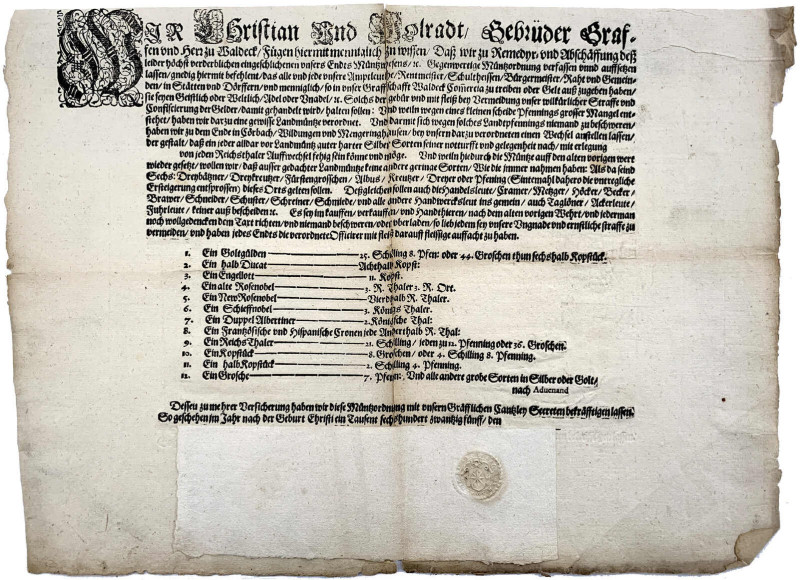 WIR Christian Und Wolradt/ Gebrüder Graf-
fen und Hern zu Waldeck/ Fügen hiermit menniglich zu wissen/ Daß wir zu Remedyr- und Abschäffung deß
leider höchst verderblichen eingeschlichenen unsers Endts Müntzwesens/ ꝛc. Gegenwertige Müntzordnung verfassen unnd auffsetzen
lassen/ gnedig hiermit befehlent/ das alle und jede unsere Amptleuthe/ Rentmeister/ Schultheissen/ Bürgermeister/ Raht und Gemein-
den/ in Stätten und Dörffern/ und menniglich/ so in unser Graffschafft Waldeck Comercia zu treiben oder Gelt auß zugeben haben/
sie seyen Geistlich oder Weltlich/ Adel oder Vnadel/ ꝛc. Solchs der gebür und mit fleiß bey Vermeidung unser willkürlicher Straffe und
Confiscierung der Gelder/ damit gehandelt wird/ halten sollen: Und weiln wegen eines kleinen scheide Pfennings grosser Mangel ent-
stehet/ haben wir darzu eine gewisse Landmüntz verordnet. Und damit sich wegen solches Landtpfennings niemand zu beschweren/
haben wir zu dem Ende in Cörbach/ Wildungen und Mengeringhausen/ bey unsern dar zu verordneten einen Wechsel anstellen lassen/
der gestalt/ daß ein jeder alldar vor Landmüntz guter harter Silber Sorten seiner notturfft und gelegenheit nach/ mit erlegung
von jeden Reichsthaler Auffwechsel fehig sein könne und möge. Und weiln hiedurch die Müntz auff den alten vorigen wert
wieder gesetzt/ wollen wir/ daß ausser gedachter Landmüntze keine ander geringe Sorten/ Wie die immer nahmen haben: Als da seind
Sechs: Dreybätzner/ Dreykreutzer/ Fürstengroschen/ Albus/ Kreutzer/ Dreyer oder Pfening (Sintemahl dahero die untregliche
Ersteigerung entsprossen) dieses Orts gelten sollen. Deßgleichen sollen auch die Handelsleute/ Cramer/ Metzger/ Höcker/ Becker/
Brawer/ Schneider/ Schuster/ Schreiner/ Schmiede/ und alle andere Handwercksleut ins gemein/ auch Taglöner/ Ackerleute/
Fuhrleute/ keiner auß bescheiden ꝛc. Es sey im kauffen/ verkauffen/ und Handthieren/ nach dem alten vorigen Wehrt/ und jederman
noch wollgedencken dem Taxt richten/ und niemand beschweren/ oder überladen/ so lieb jedem sey unsere Ungnade und ernstliche straffe zu
vermeiden/ und haben jedes Endts die verordnete Officirer mit fleiß darauff fleissige auffacht zu haben.
1. Ein Goltgülden 25. Schilling 8. Pfen: oder 44. Groschen thun sechshalb Kopstück.
2. Ein halb Ducat Achthalb Kopst:
3. Ein Engellott 11. Kopst.
4. Ein alte Rosenobel 3. R. Thaler 3. R. Ort.
5. Ein New Rosenobel Vierdhalb R. Thaler.
6. Ein Schieffnobel 3. Königs Thaler.
7. Ein Duppel Albertiner 2. Königsche Thal:
8. Ein Frantzösische und Hispanische Cronen jede Anderthalb R. Thal:
9. Ein Reichs Thaler 21. Schilling/ jeden zu 12. Pfenning oder 36. Groschen.
10. Ein Kopstück 8. Groschen/ oder 4. Schilling 8. Pfenning.
11. Ein halb Kopstück 2. Schilling 4. Pfenning.
12. Ein Grosche 7. Pfenn: Und alle andere grobe Sorten in Silber oder Golt/
nach Aduenand
Dessen zu mehrer Versicherung haben wir diese Müntzordnung mit unsern Gräfflichen Cantzley Secreten bekräfftigen lassen.
So geschehen im Jahr nach der Geburt Christi ein Tausent sechshundert zwantzig fünff/ den